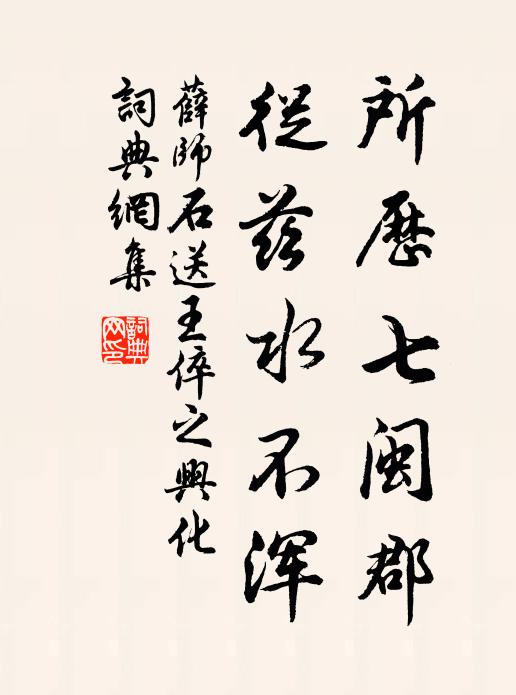 所歷七闽郡
從茲水不浑
薛師石送王倅之興化
詞典網集
詞典网印